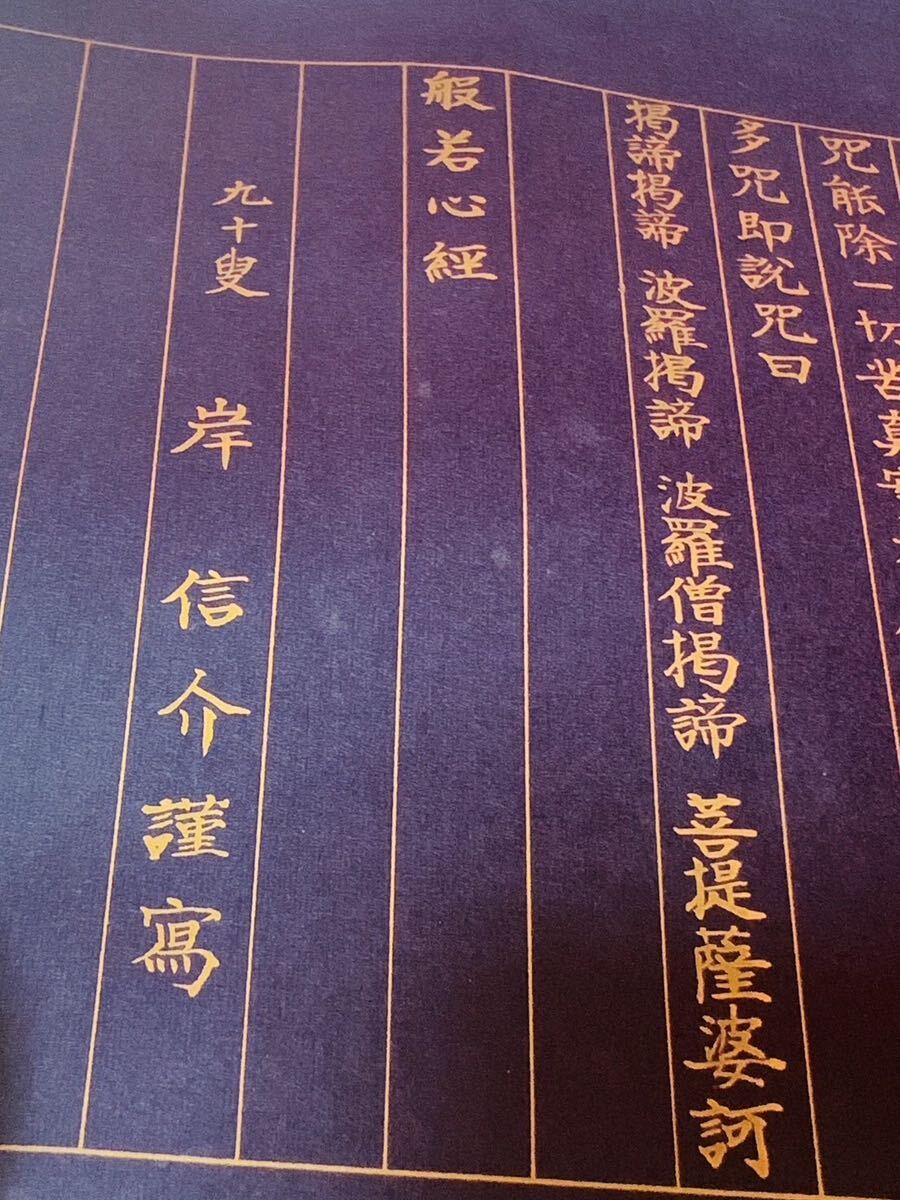 咒能除一切苦真實不
多咒即說咒曰
揭諦揭諦 波羅揭諦 波羅僧揭諦 菩提薩婆訶
般若心經
九十叟 岸 信介謹寫